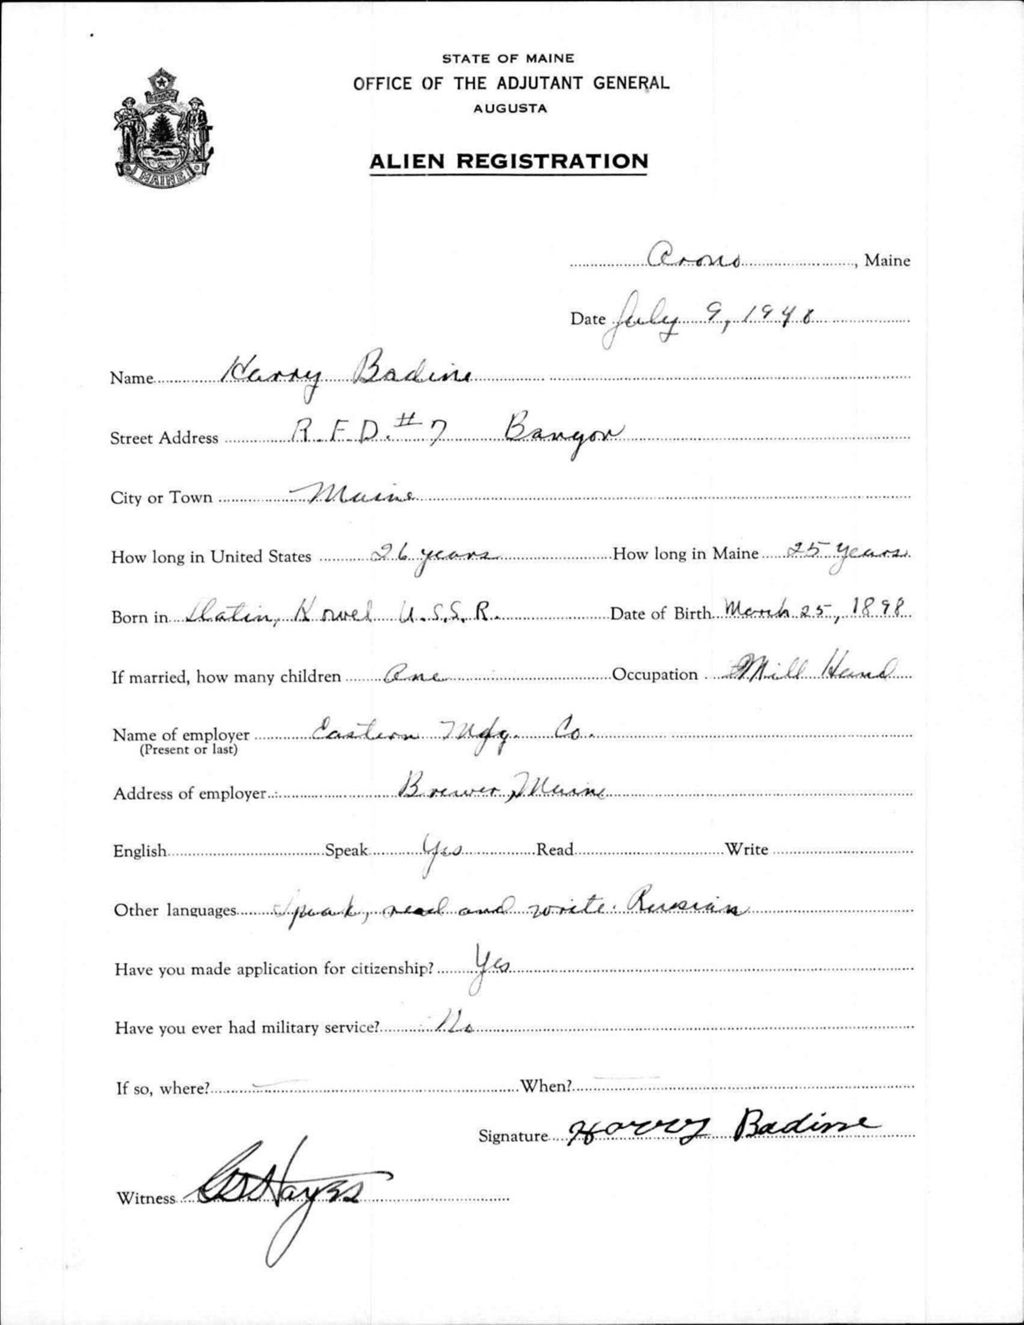 STATE OF MAINE
OFFICE OF THE ADJUTANT GENERAL
AUGUSTA
ALIEN REGISTRATION
MAINE
Orono, Maine
Date July 9, 1940
Name Harry Badine
Street Address R.F.D. #7 Bangor
City or Town Maine
How long in United States 26 years How long in Maine 25 years
Born in Kowel U.S.S.R. Date of Birth March 25, 1898
If married, how many children One Occupation Mill Hand
Name of employer Eastern Mfg. Co.
(Present or last)
Address of employer Brewer, Maine
English Speak Yes Read Write
Other languages Speak, read and write. Russian
Have you made application for citizenship? Yes
Have you ever had military service? No
If so, where? — When? —
Signature Harry Badine
Witness Hayes